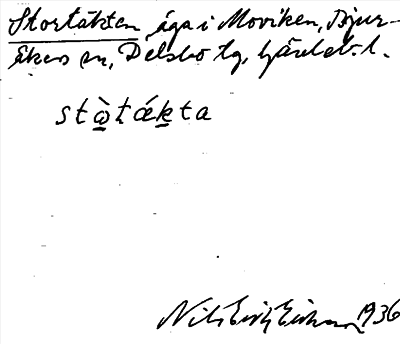 Stortäkten, äga i Moviken, Bjur-
åkers sn, Delsbo tg, Gävleb. l.
stὼtǽkta
Nils Erik Eriksson 1936